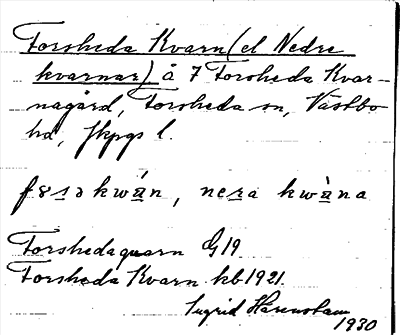 Forsheda Kvarn (el Nedre
kvarnar) å 7 Forsheda Kvar-
nagård, Forsheda sn, Västbo
hd, Jkpgs l.
fɤs̱ə kwá̱n, neṟa kwà̱na
Forshedaquarn G19
Forsheda Kvarn hb 1921.
Sigrid
1930